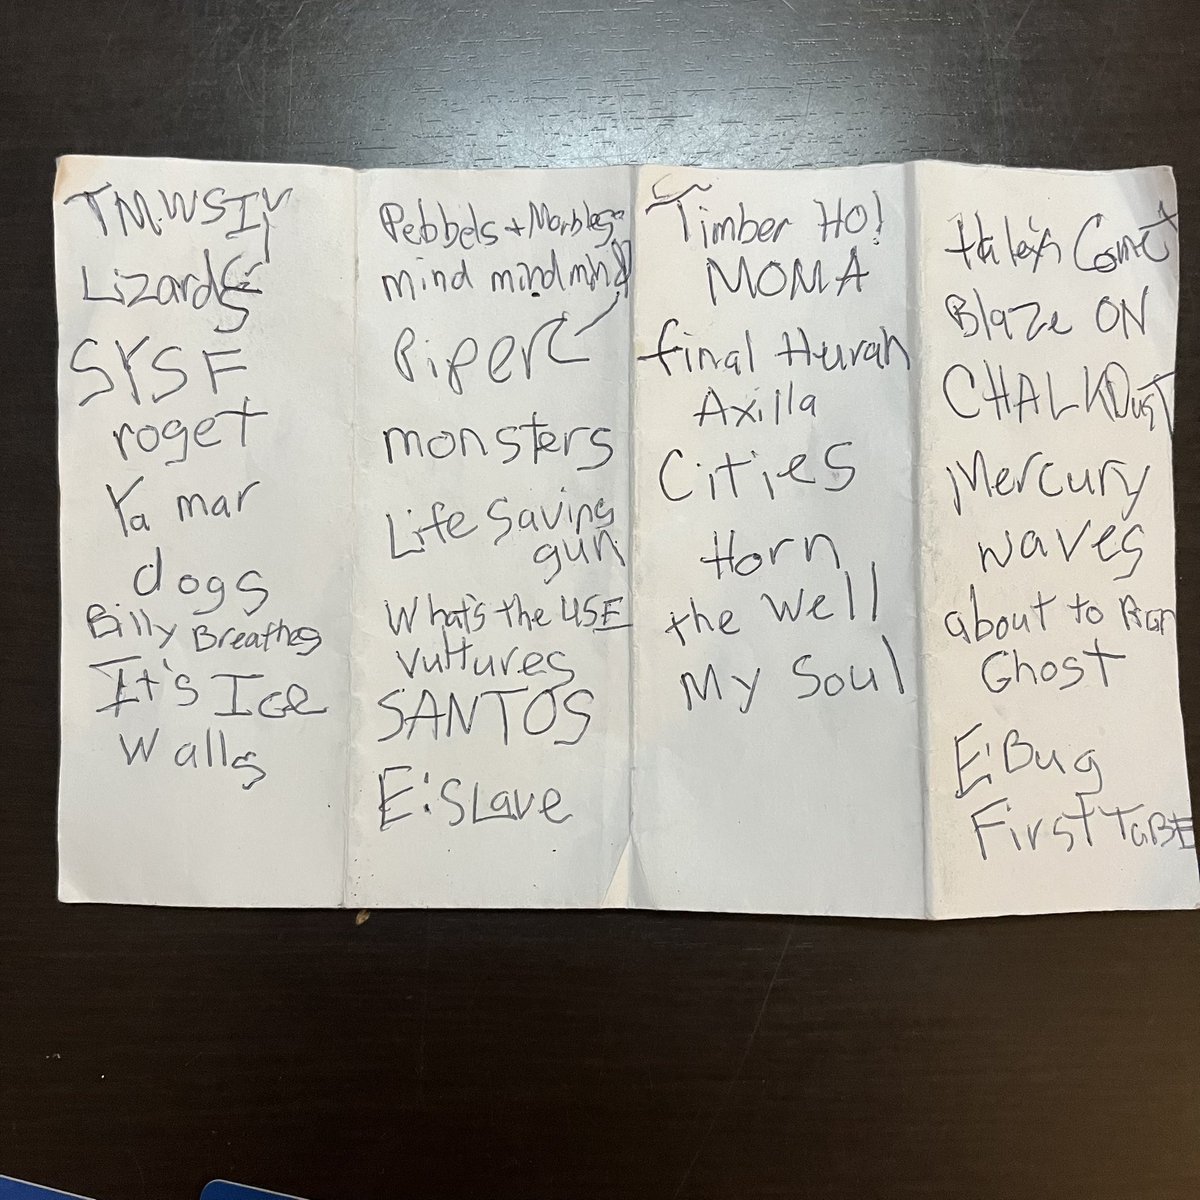 TMWSIY
Lizards
SYSF
roget
Ya mar
dogs
Billy Breathes
It's Ice
Walls
Pebbels + Marbles
mind mind mind
Piper
monsters
Life Saving
gun
What's the USE
Vultures
SANTOS
E: SLave
Timber HO!
MOMA
final Hurah
Axilla
Cities
Horn
the Well
My Soul
Haley's Comet
Blaze ON
CHALKDusT
Mercury
waves
about to Run
Ghost
E: Bug
First TuBE